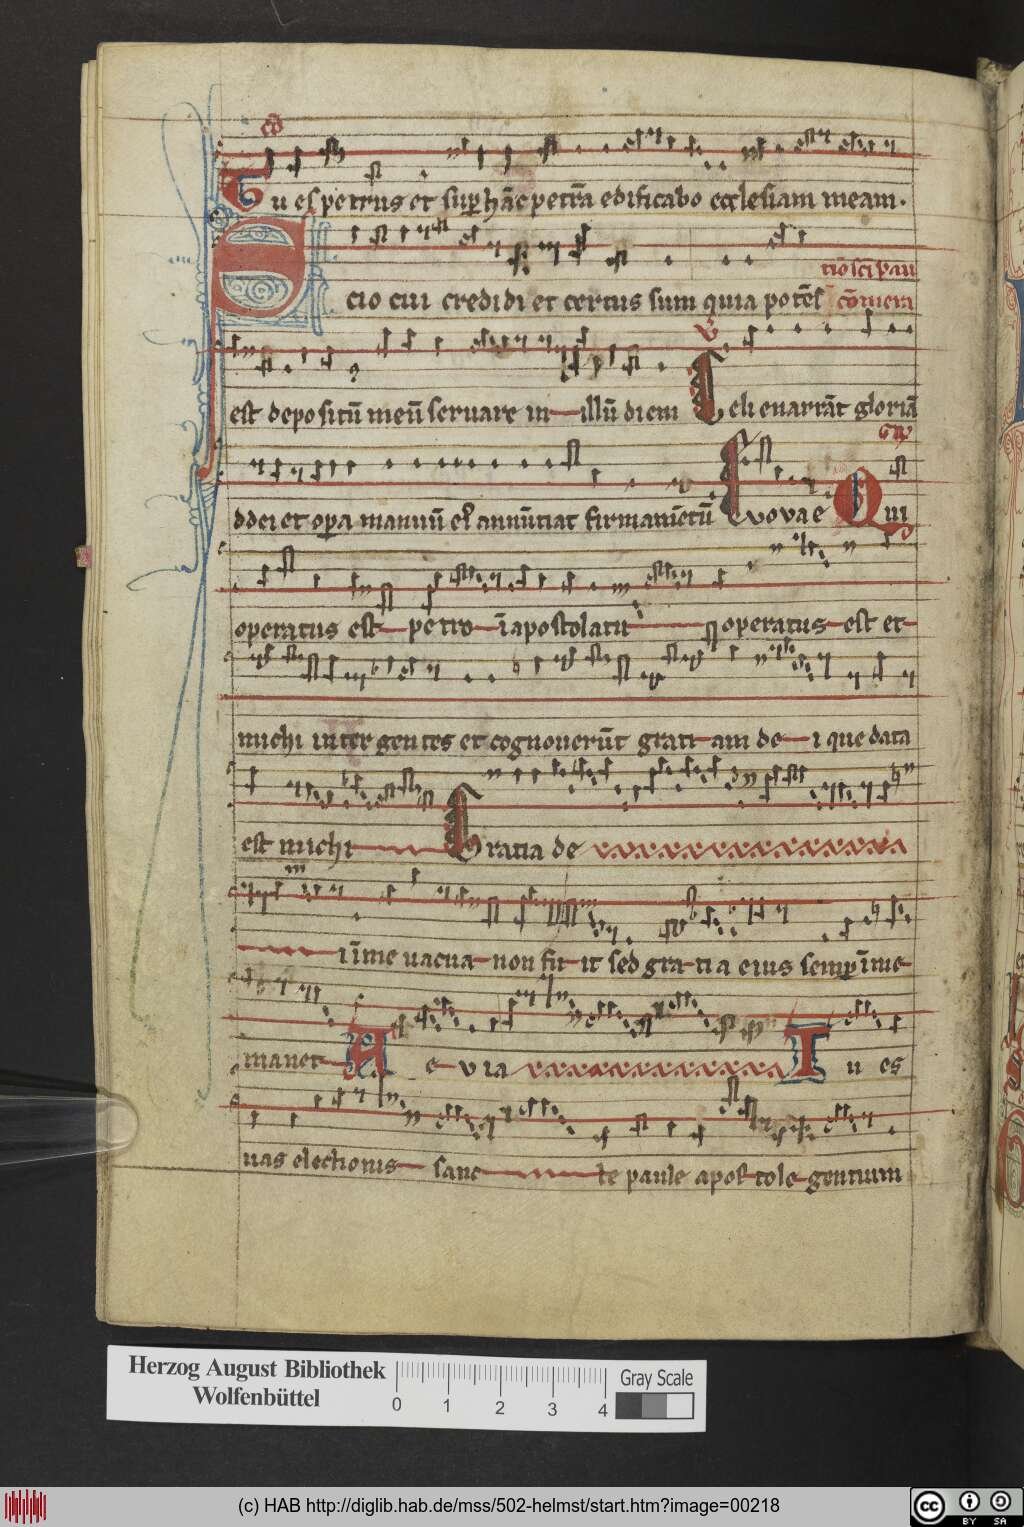 cō
Tu es petrus et sup hāc petrā edificabo ecclesiam meam.
Scio cui credidi et certus sum quia potēs
tio scī pau
cōmem
est depositū meū seruare in illū diem Celi enarrāt gloriā
V
Grᵃ
d dei et opa manuū eꝰ annūtiat firmamētū Evovae Qui
operatus est petro ī apostolatu operatus est et
michi inter gentes et cognouerūt gratiam dei que data
est michi Gratia de
i ī me uacua non fuit sed gratia eius semp ī me
manet Aevia Tu es
uas electionis sancte paule apostole gentium
Herzog August Bibliothek
Wolfenbüttel
0 1 2 3 4
Gray Scale
(c) HAB http://diglib.hab.de/mss/502-helmst/start.htm?image=00218
cc BY SA